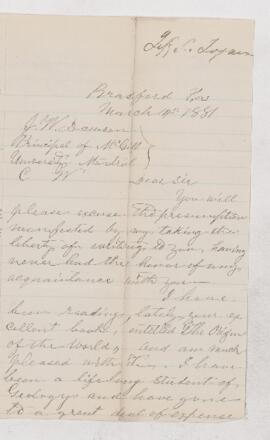 Bradford
March 14th 1881
J. W. Dawson
Principal of McGill
University Montreal
C W
Dear Sir
You will
please excuse the presumption
manifested by my taking the
liberty of writing to you, having
never had the honor of any
acquaintance with you—
I have
been reading lately your ex
cellent book, entitled The Origin
of the World, and am much
pleased with it. I have
been a life long student of
Geology and have gone
to a great deal of expense